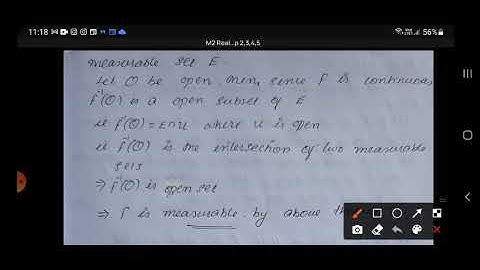 11:18
56%
M2 Real...p 2,3,4,5
measurable set E.
Let O be open. Then, since f is continuous
f⁻¹(O) is a open subset of E
ie f⁻¹(O) = E∩U where U is open
ie f⁻¹(O) is the intersection of two measurable
sets
⇒ f⁻¹(O) is open set
⇒ f is measurable by above